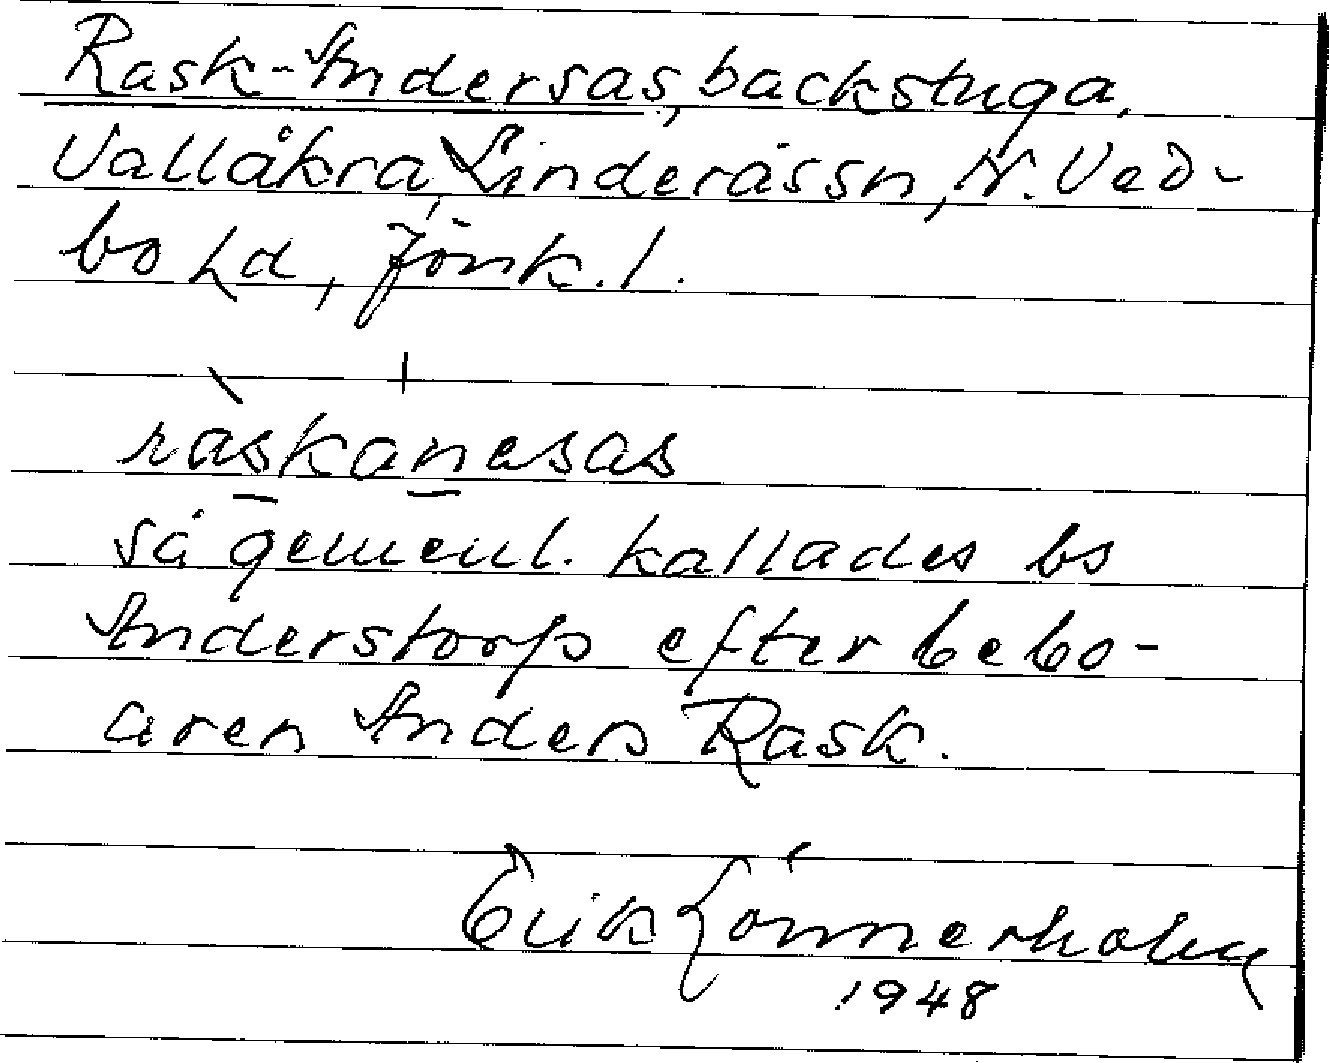 Rask-Andersas, backstuga,
Vallåkra, Linderåssn, N. Ved-
bo hd, Jönk. l.
raskanasas
så gemenl. kallades bs
Anderstorp efter bebo-
aren Anders Rask.
Erik Lönnerholm
1948